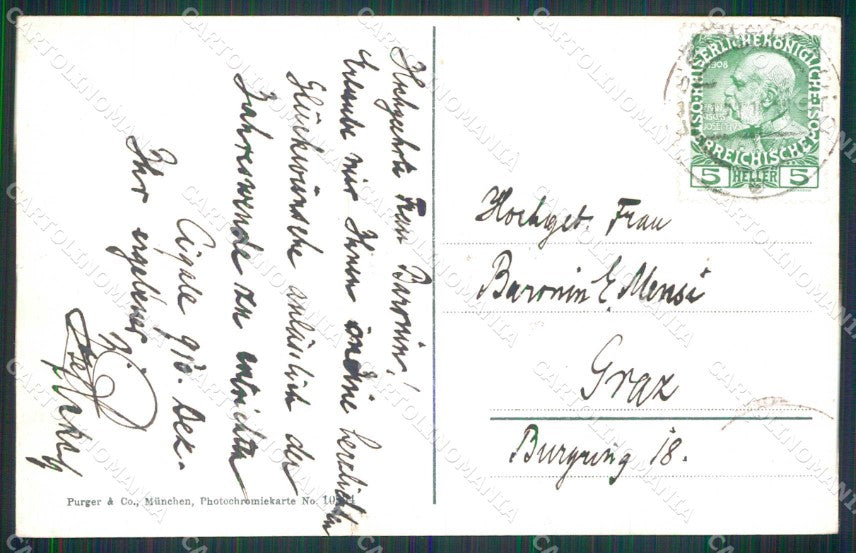 Hochgeehrte Frau Baronin!
Erlaube mir Ihnen andurch herzlichen
Glückwünsche anlässlich der
Jahreswende zu entrichten
Ihr ergebener
910. Dez.
Purger & Co., München, Photochromiekarte No.
KAISERLICHE KÖNIGLICHE
ÖSTERREICHISCHE
1908
5 HELLER 5
Hochget. Frau
Baronin E Mensi
Graz
Burgring 18.
CARTOLINOMANIA